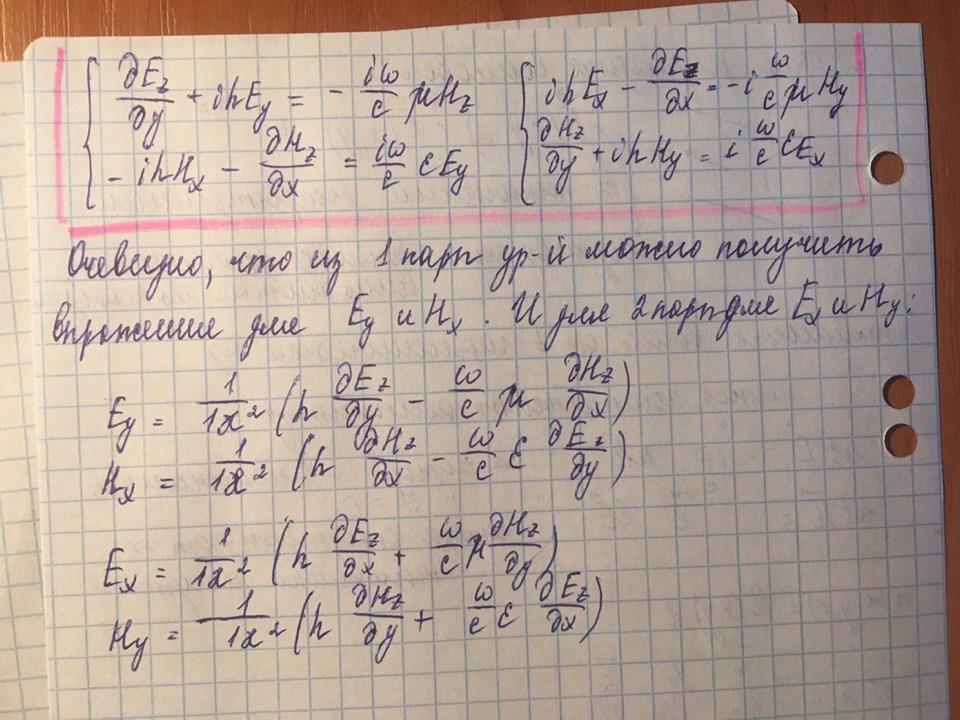 ∂E_z/∂y + ihE_y = - iω/c μH_z    ihE_x - ∂E_z/∂x = -i ω/c μH_y
-ihH_x - ∂H_z/∂x = iω/c εE_y    ∂H_z/∂y + ihH_y = i ω/c εE_x
Очевидно, что из 1 пары ур-й можно получить
выражение для E_y и H_x. И для 2 пары для E_x и H_y:
E_y = 1/æ² (h ∂E_z/∂y - ω/c μ ∂H_z/∂x)
H_x = 1/æ² (h ∂H_z/∂x - ω/c ε ∂E_z/∂y)
E_x = 1/æ² (h ∂E_z/∂x + ω/c μ ∂H_z/∂y)
H_y = 1/æ² (h ∂H_z/∂y + ω/c ε ∂E_z/∂x)